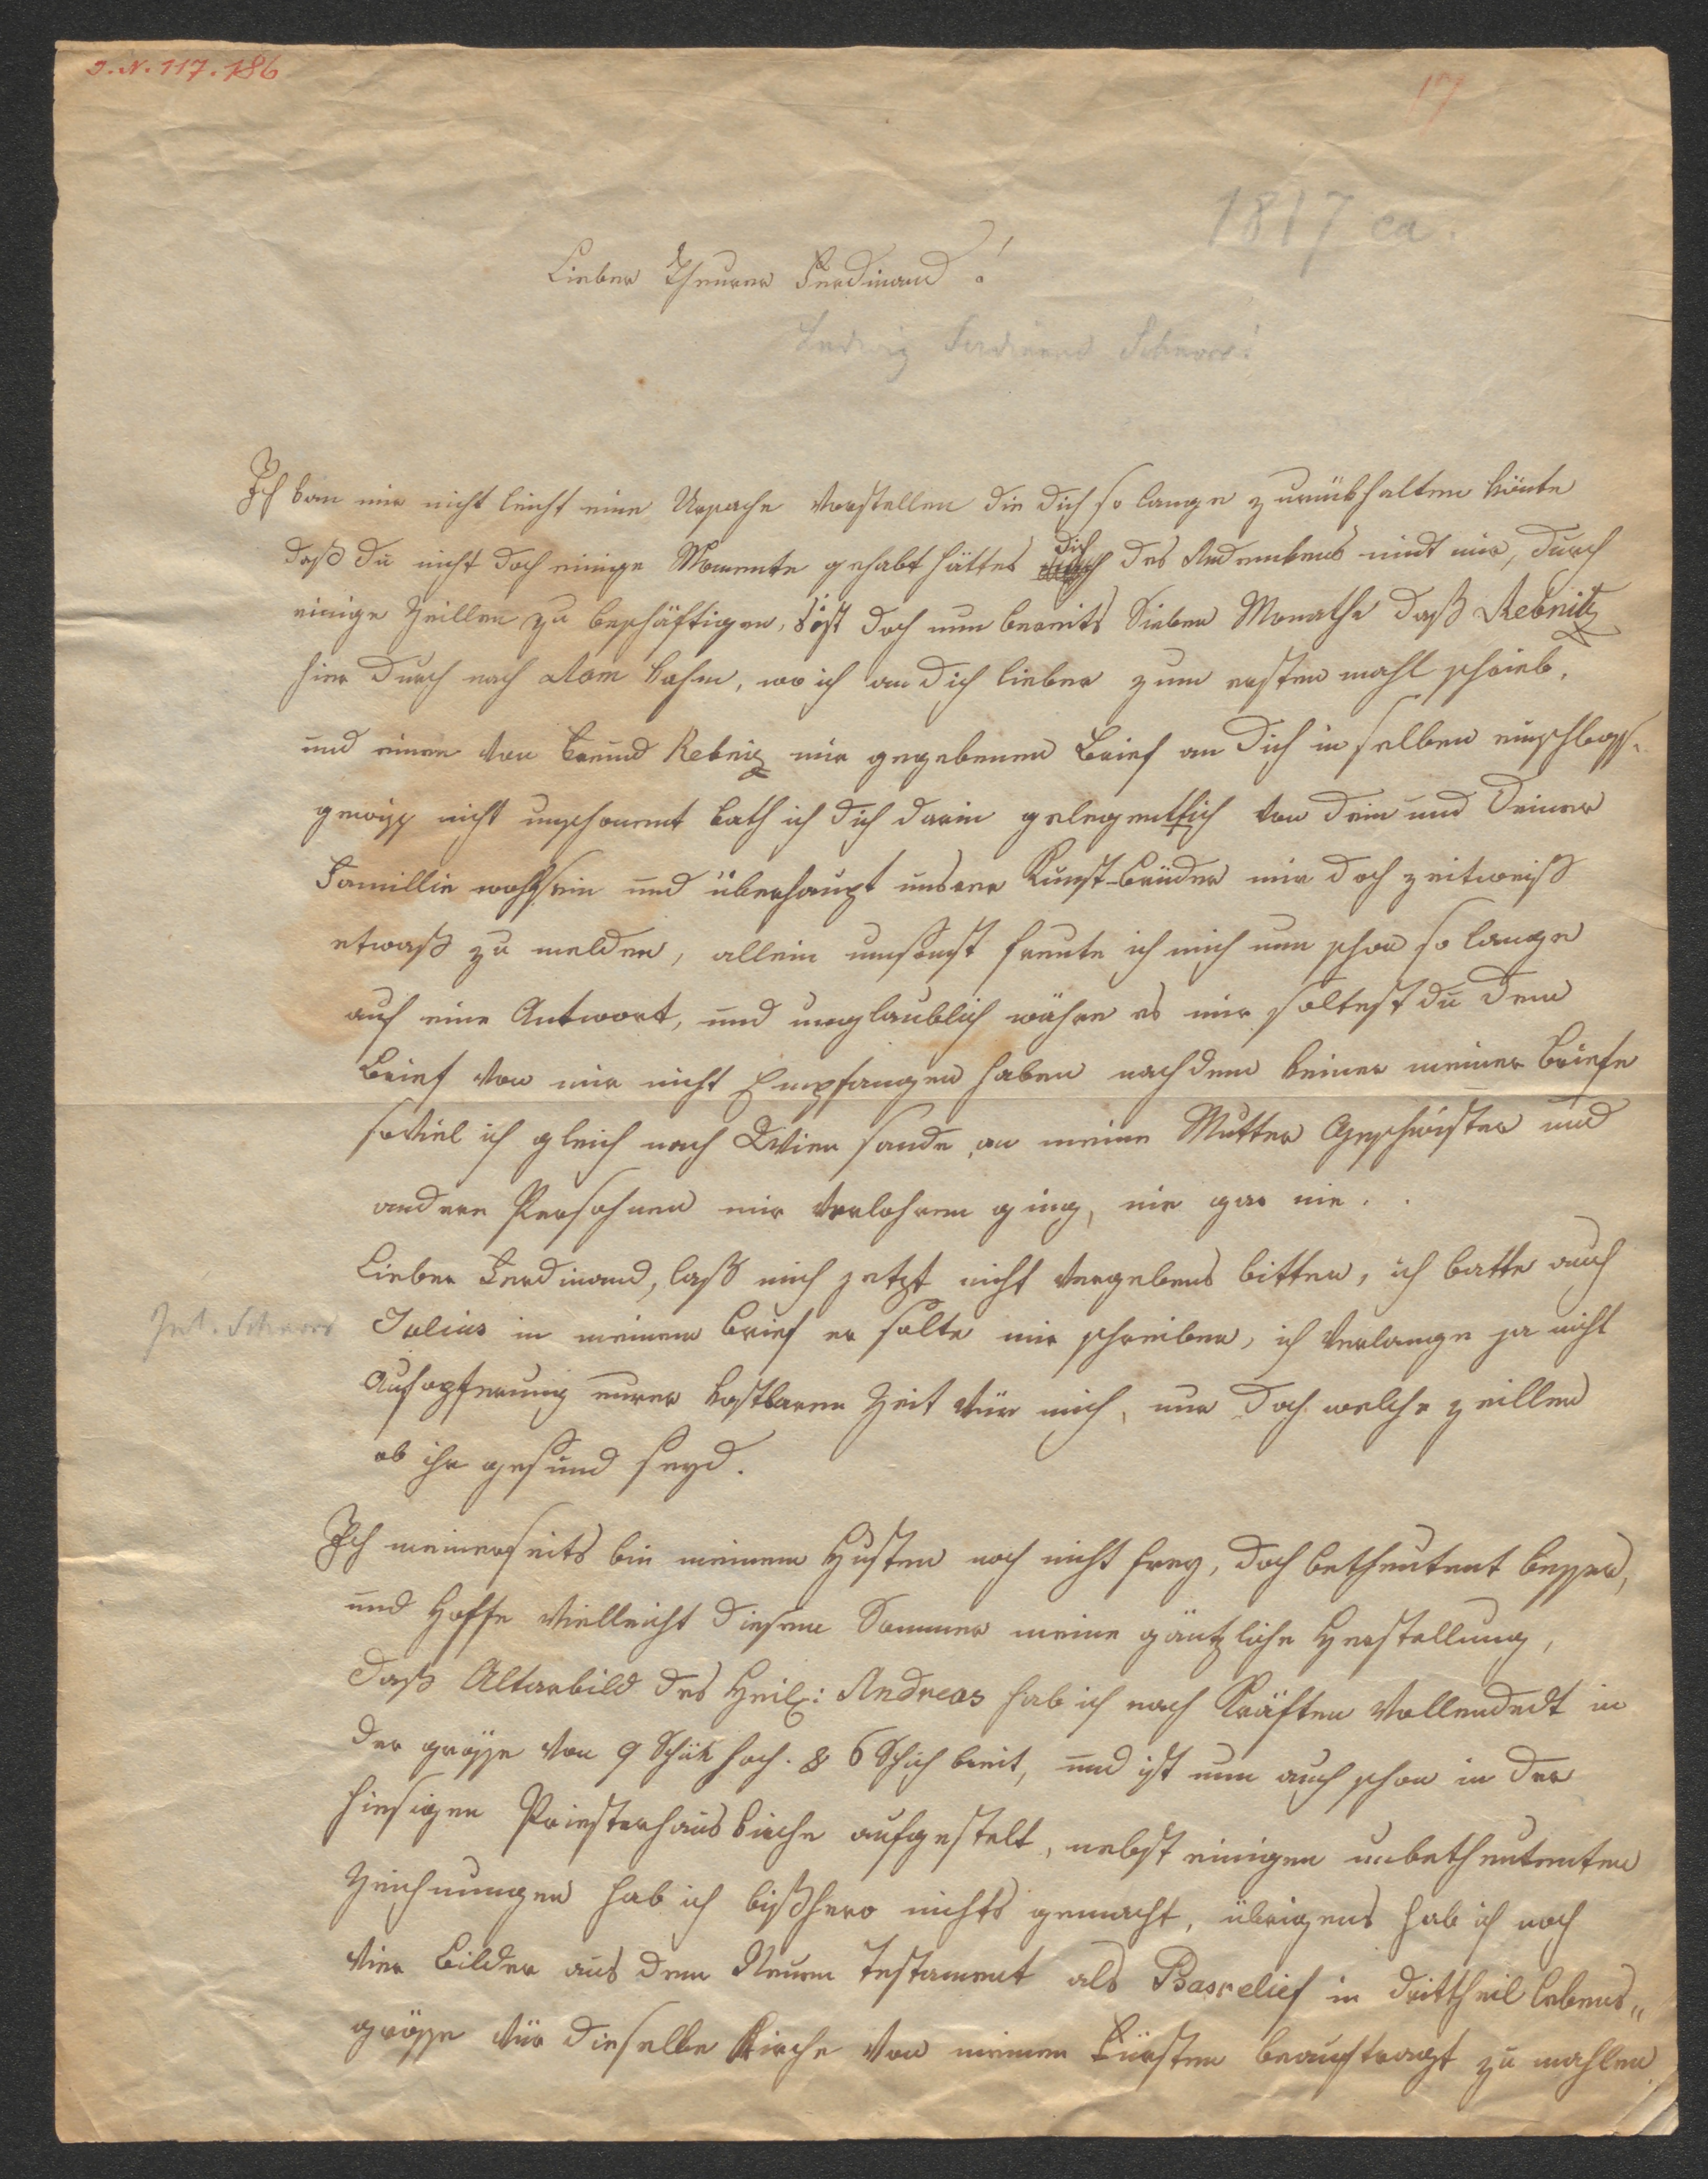 I. N. 117.186
17
1817 ca.
Lieber Theurer Ferdinand!
Ludwig Ferdinand Schnorr!
Ich kan mir nicht leicht eine Ursache Vorstellen die dich so lange zurükhalten könte
daß du nicht doch einige Momente gehabt hättes dich des Andenkens mit mir, durch
einige Zeillen zu beschäftigen, s'ist doch nun bereits Sieben Monathe daß Rebnitz
hier durch nach Rom kahm, wo ich an dich lieber zum ersten mahl schrieb,
und einen von Freund Rebniz mir gegebenen Brief an dich in selben einschloß.
gewiß nicht ungschonent bath ich dich darin gelegentlich von dein und deiner
Familie wohlsein und überhaupt unsrer Kunst-Brüder mir doch zeitweiß
etwaß zu melden, allein umsonst freute ich mich nun schon so lange
auf eine Antwort, und unglaublich währe es mir soltest du den
Brief von mir nicht Empfangen haben nach dem keiner meiner Briefe
soviel ich gleich nach Wien sande, an meine Mutter Geschwister und
andere Persohnen mir Verlohren ging, nie gar nie.
Lieber Ferdinand, laß mich jetzt nicht vergebens bitten, ich batte auch
Jul. Schnorr
Julius in meinem Brief er solte mir schreiben, ich Verlange ja nicht
Aufopferung eurer kostbaren Zeit Vür mich, nur doch welche zeillen
ob ihr gesund seyd.
Ich meinerseits bin meinem Husten noch nicht frey, doch betheutent besser,
und Hoffe Vielleicht diesen Sommer meine gäntzliche Herstellung,
daß Altarbild des Heil: Andreas hab ich nach Kräften Vollendedt in
der größe von 9 Schuh hoch. & 6 Schuh breit, und ist nun auch schon in der
hiesigen Priesterhaus kirche aufgestelt, nebst einigen unbetheutenten
Zeichnungen hab ich bißhero nichts gemacht, übrigens hab ich noch
Vier Bilder aus dem Neuen Testament als Basrelief in drittheil lebens„
größe Vür dieselbe Kirche von meinem Fürsten beauftragt zu mahlen